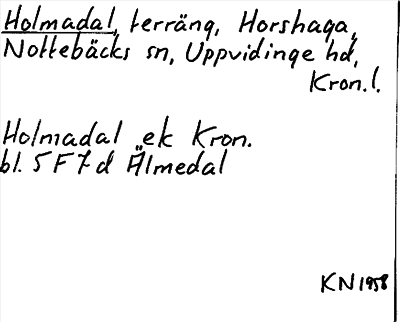 Holmadal, terräng, Horshaga,
Nottebäcks sn, Uppvidinge hd,
Kron.l.
Holmadal ek Kron.
bl. 5 F 7 d Älmedal
KN 1958